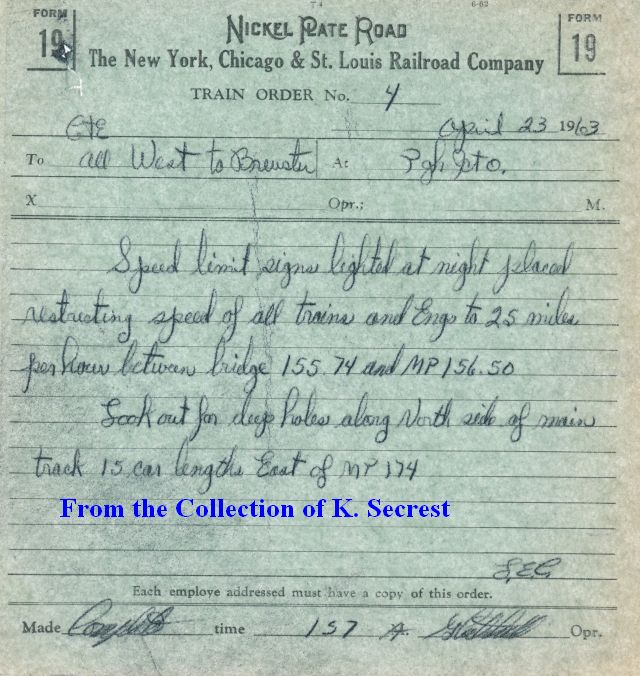 FORM 19
NICKEL PLATE ROAD
FORM 19
The New York, Chicago & St. Louis Railroad Company
TRAIN ORDER No. 4
C&E April 23 1963
To all West to Brewster At Pgh Jct O.
X Opr.; M.
Speed limit signs lighted at night placed
restricting speed of all trains and Engs to 25 miles
per hour between bridge 155.74 and MP 156.50
Look out for deep holes along North side of main
track 15 car lengths East of MP 174
From the Collection of K. Secrest
Each employe addressed must have a copy of this order.
Made Complete time 157 A. Opr.